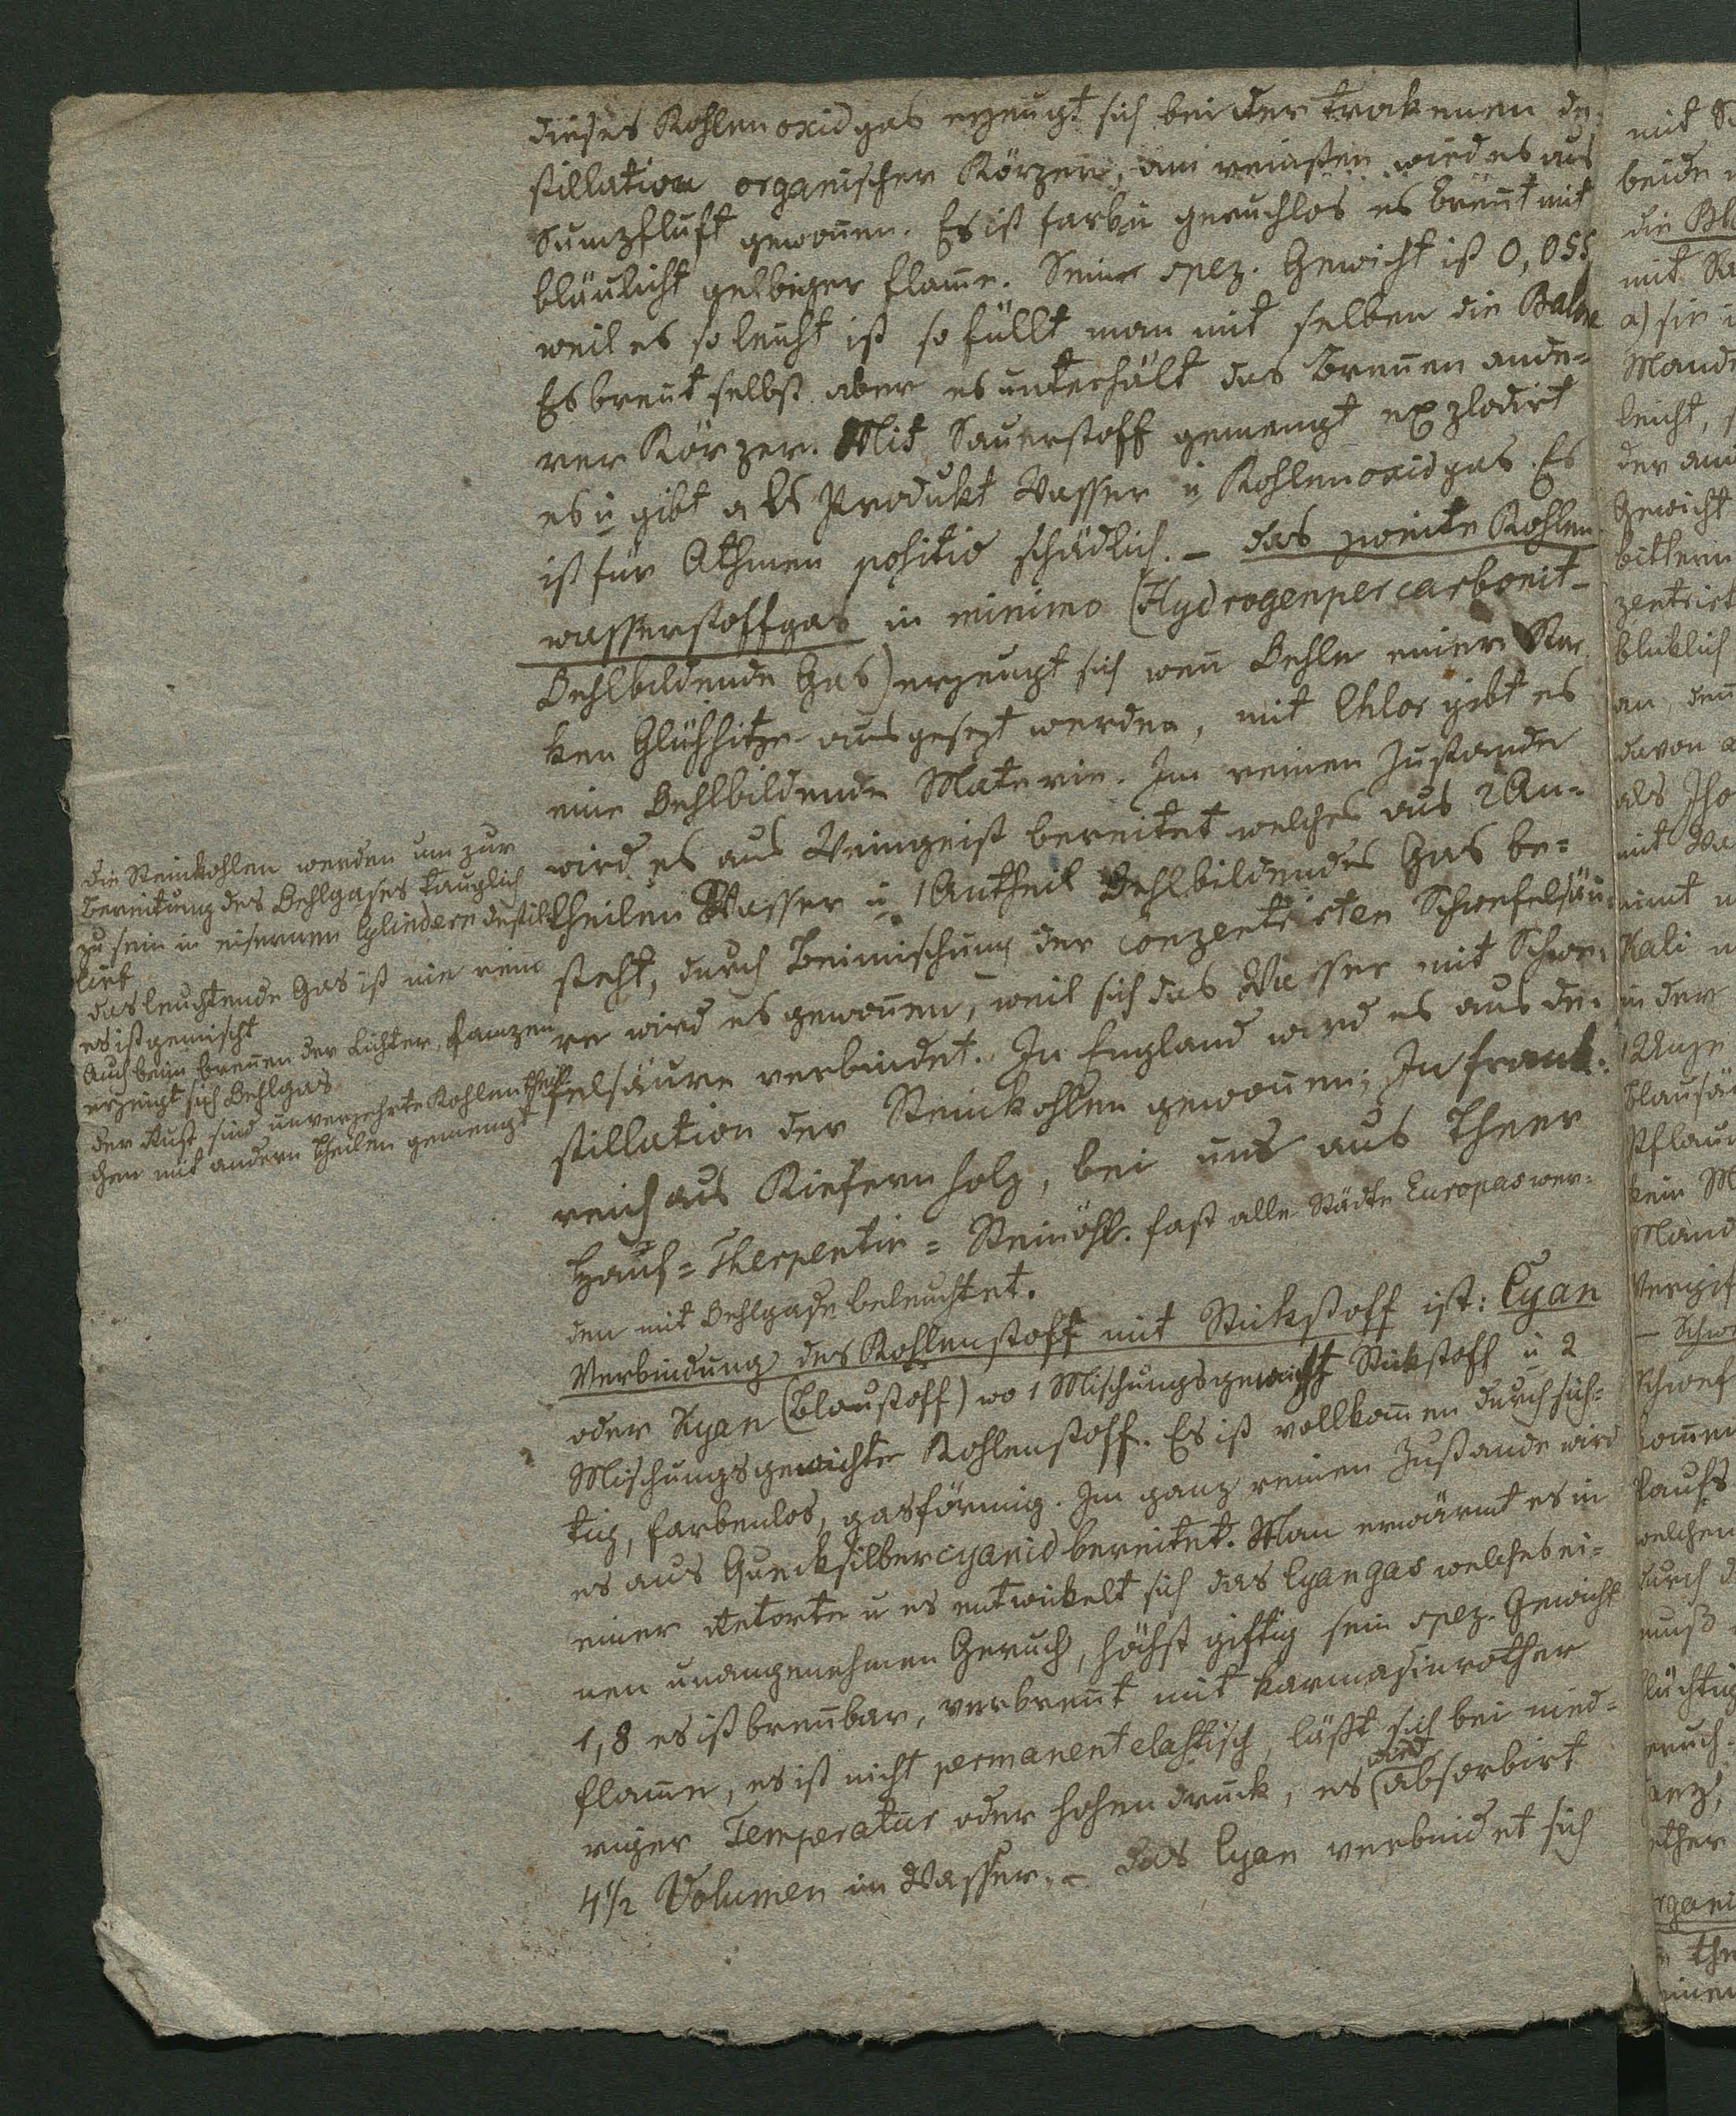 dieses Kohlenoxidgas erzeugt sich bei der trokenen de-
stillation organischer Körper, am reinsten wird es aus
Sumpfluft gewonnen. Es ist farb u geruchlos es brennt mit
bläulicht gelbiger Flame. Seine spez. Gewicht ist 0,055
weil es so leicht ist so füllt man mit selben die
Es brennt selbst aber es unterhält das Brennen ande=
rer Körper. Mit Sauerstoff gemengt explodirt
es u gibt als Produkt Wasser u Kohlenoxidgas. Es
ist für Athmen positiv schädlich. – das zweite Kohlen
wasserstoffgas in minimo (Hydrogenpercarbonit-
Oehlbildende Gas) erzeugt sich wenn Oehle einer star
ken Glühhitze ausgesezt werden, mit Chlor gibt es
eine Oehlbildende Materie. Im reinen Zustande
wird es aus Weingeist bereitet welches aus 2 An=
theilen Wasser u 1 Antheil Oehlbildendes Gas be=
steht, durch Beimischung der conzentrirten Schwefelsäu
re wird es gewonnen, weil sich das Wasser mit Schwe=
felsäure verbindet. In England wird es aus de=
stillation der Steinkohlen gewonnen; In Frank=
reich aus Kiefernholz, bei uns aus Theer
Hanf= Therpentin= Steinöhl. fast alle Städte Europas wer=
den mit Oehlgase beleuchtet.
Verbindung des Kohlenstoff mit Stikstoff ist: Cyan
oder Kyan (Blaustoff) wo 1 Mischungsgewicht Stikstoff u 2
Mischungsgewichte Kohlenstoff. Es ist vollkommen durchsich=
tig, farbenlos, gasförmig. Im ganz reinen Zustande wird
es aus Quecksilbercyanid bereitet. Man erwärmt es in
einer Retorte u es entwickelt sich das Cyangas welches ei=
nen unangenehmen Geruch, höchst giftig sein spez. Gewicht
1,8 es ist brennbar, verbrennt mit karmasinrother
flamme, es ist nicht permanent elastisch, läßt sich bei nied=
riger Temperatur oder hohen druck, es (wird absorbirt
4 1/2 Volumen in Wasser. – das Cyan verbindet sich
die Steinkohlen werden um zur
Bereitung des Oehlgases tauglich
zu sein in eisernen Cylindern destil
lirt
das leuchtende Gas ist nie rein
es ist gemischt
Auch beim brennen der Lichter, Lampen
erzeugt sich Oehlgas
der Rust sind unverzehrte Kohlentheil
chen mit andern Theilen gemengt
mit
beide
die
mit
a) sie
leicht,
Gewicht
bittern
bliklich
davon
als
mit
Kali
in der
kein
durch
muß